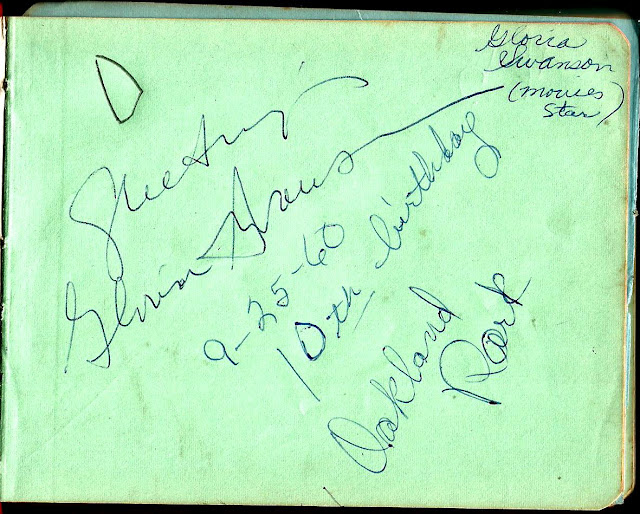 Gloria
Swanson
(movies
Star)
D
Greetings
Gloria Swanson
9-25-60
10th birthday
Oakland
Park